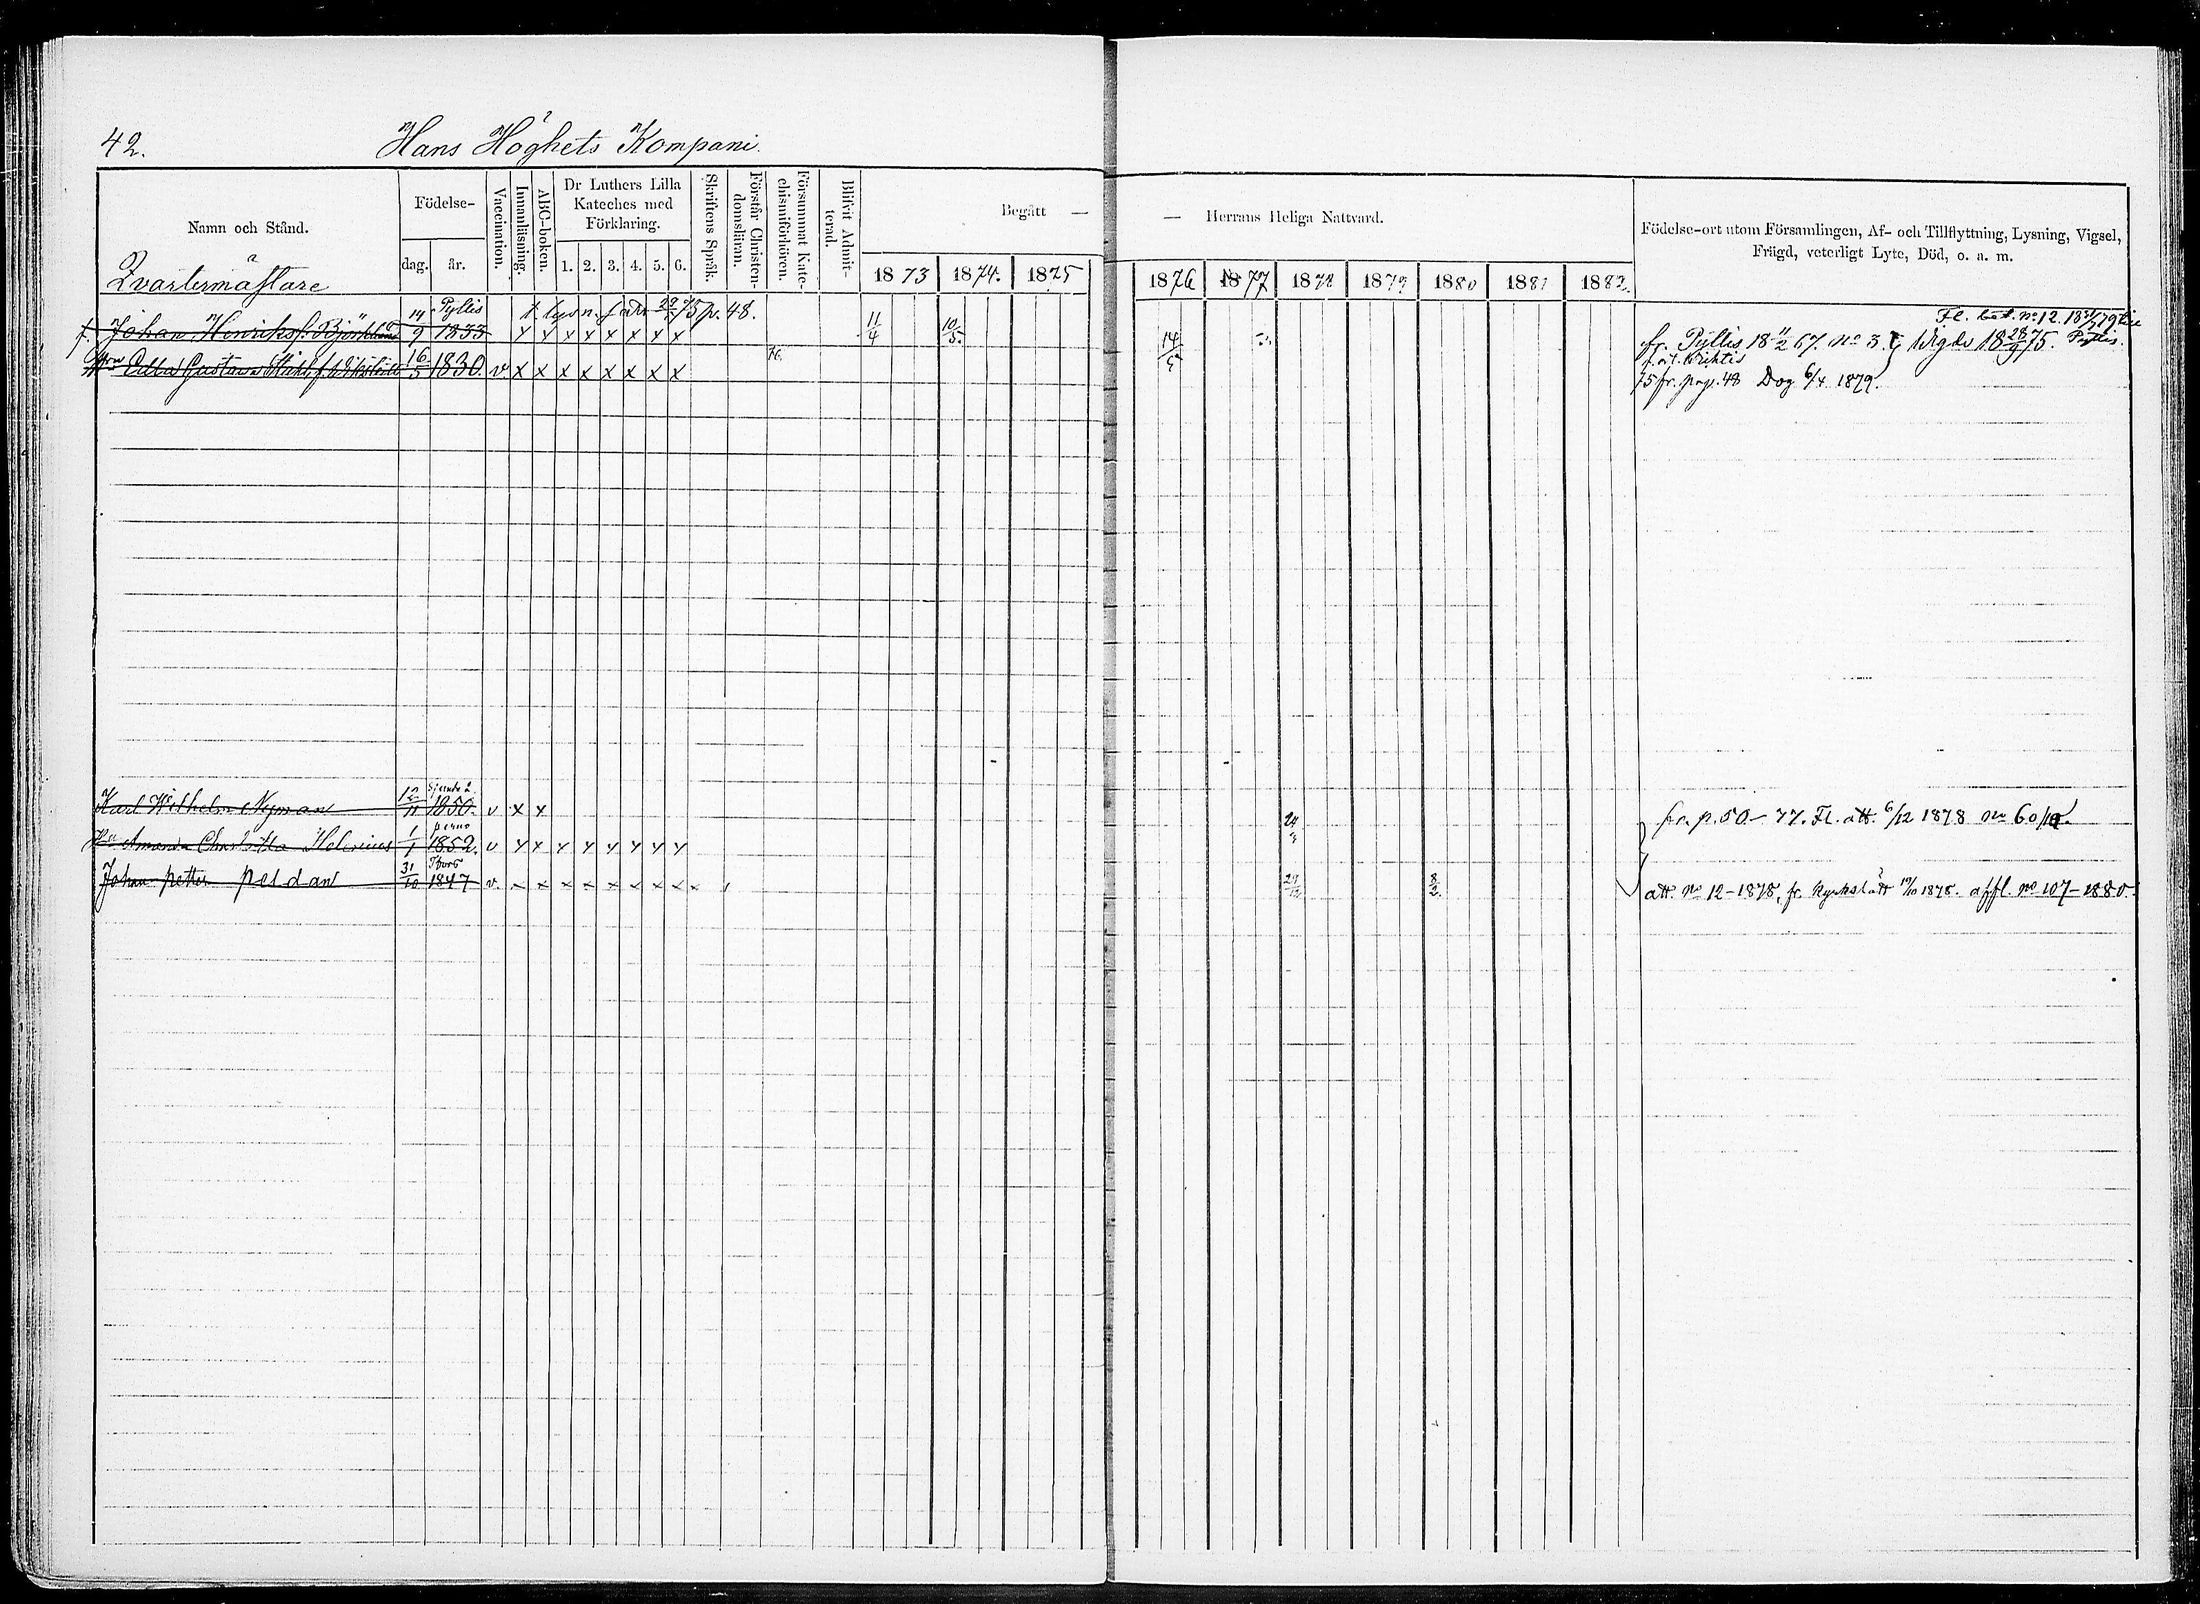 42. Hans Höghets Kompani.
Namn och Stånd.
Qvartermästare
Födelse-
dag. år.
Vaccination.
Innanläsning.
ABC-boken.
Dr Luthers Lilla
Kateches med
Förklaring.
1. 2. 3. 4. 5. 6.
Skriftens Språk.
Förstår Christen-
domsläran.
Försummat Kate-
chismiförhören.
Blifvit Admit-
terad.
Begått — — Herrans Heliga Nattvard.
1873 1874. 1875 1876 1877 1878 1879 1880 1881 1882.
Födelse-ort utom Församlingen, Af- och Tillflyttning, Lysning, Vigsel,
Frägd, veterligt Lyte, Död, o. a. m.
14 Pyttis p. 48. Fl. bet. no 12. 18 79
f. Johan Henrikss. Björklund 9 1833 x x x x x x x x 11/4 10/5. fr. Pyttis 18 11/2 67. no 3. Vigds 18 28/9 75. Pyttis.
Ulla Gustava Ståhl, f. 16/5 1830. v x x x x x x x x 76. 14/5
75 fr. pag. 48 Dog 6/4 1879.
Karl Wilhelm Nyman 12/11 Sjundeå 1850. v x x 24 fr. p. 50 – 77. Fl. att. 6/12 1878 no 60
Hu Amanda Charlotta Helenius 1/1 perno 1852. v x x x x x x x x
Johan petter peldan 31/10 1847 v. x x x x x x x x x 8/2. att. no 12 – 1878, fr. kyrkslätt 1878. affl. no 107 – 1880.